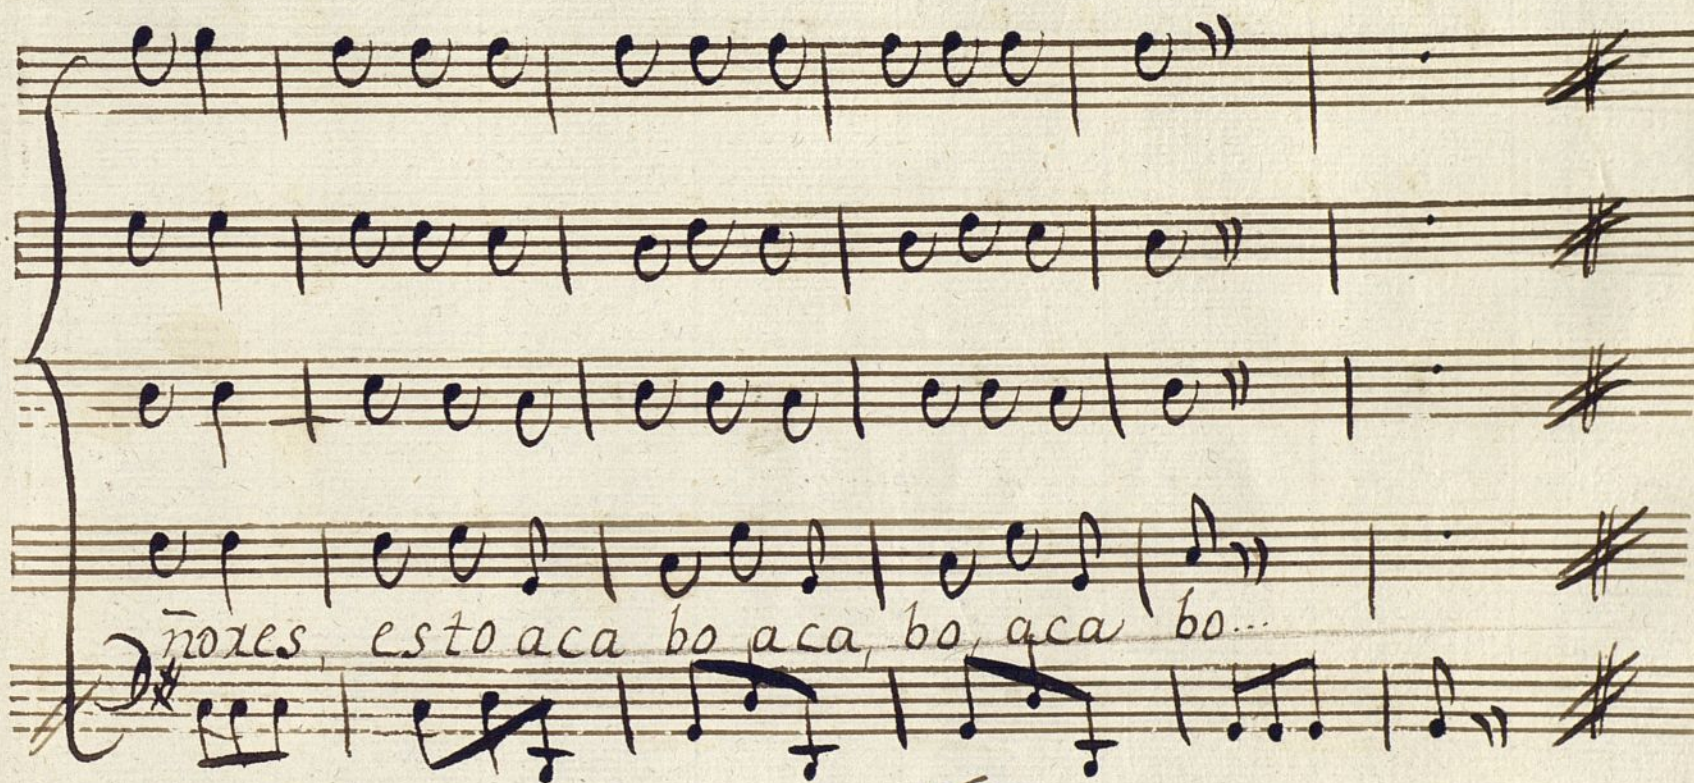 ñores, esto aca bo aca, bo, aca bo...